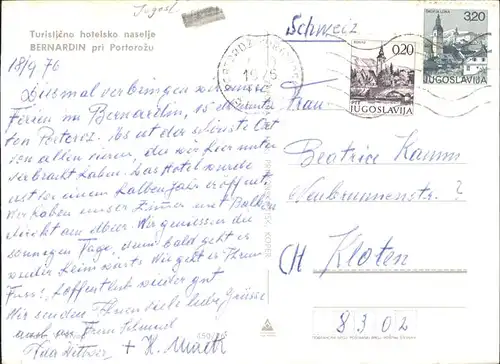 Jugosl.
Turistično hotelsko naselje
BERNARDIN pri Portorožu
18/9 76
Diesmal verbringen wir unsere
Ferien im Bernardin, 15 Minuten
von Portoroz. Es ist der schönste Ort
von allen vieren, die wir hier unten
verbracht haben. Das Hotel wurde
erst vor einem halben Jahr eröffnet.
Wir haben unser Zimmer mit Balkon
direkt am Meer. Wir geniessen die
sonnigen Tage, denn bald geht es
wieder heimwärts. Wie geht es Ihrem
Fuss? Hoffentlich wieder gut
Wir senden Ihnen viele liebe Grüsse
auch von Frau
+ K.
Schweiz
0,20
JUGOSLAVIJA
3,20
JUGOSLAVIJA
Frau
Beatrice Kamm
Neubrunnenstr. ?
CH Kloten
8302